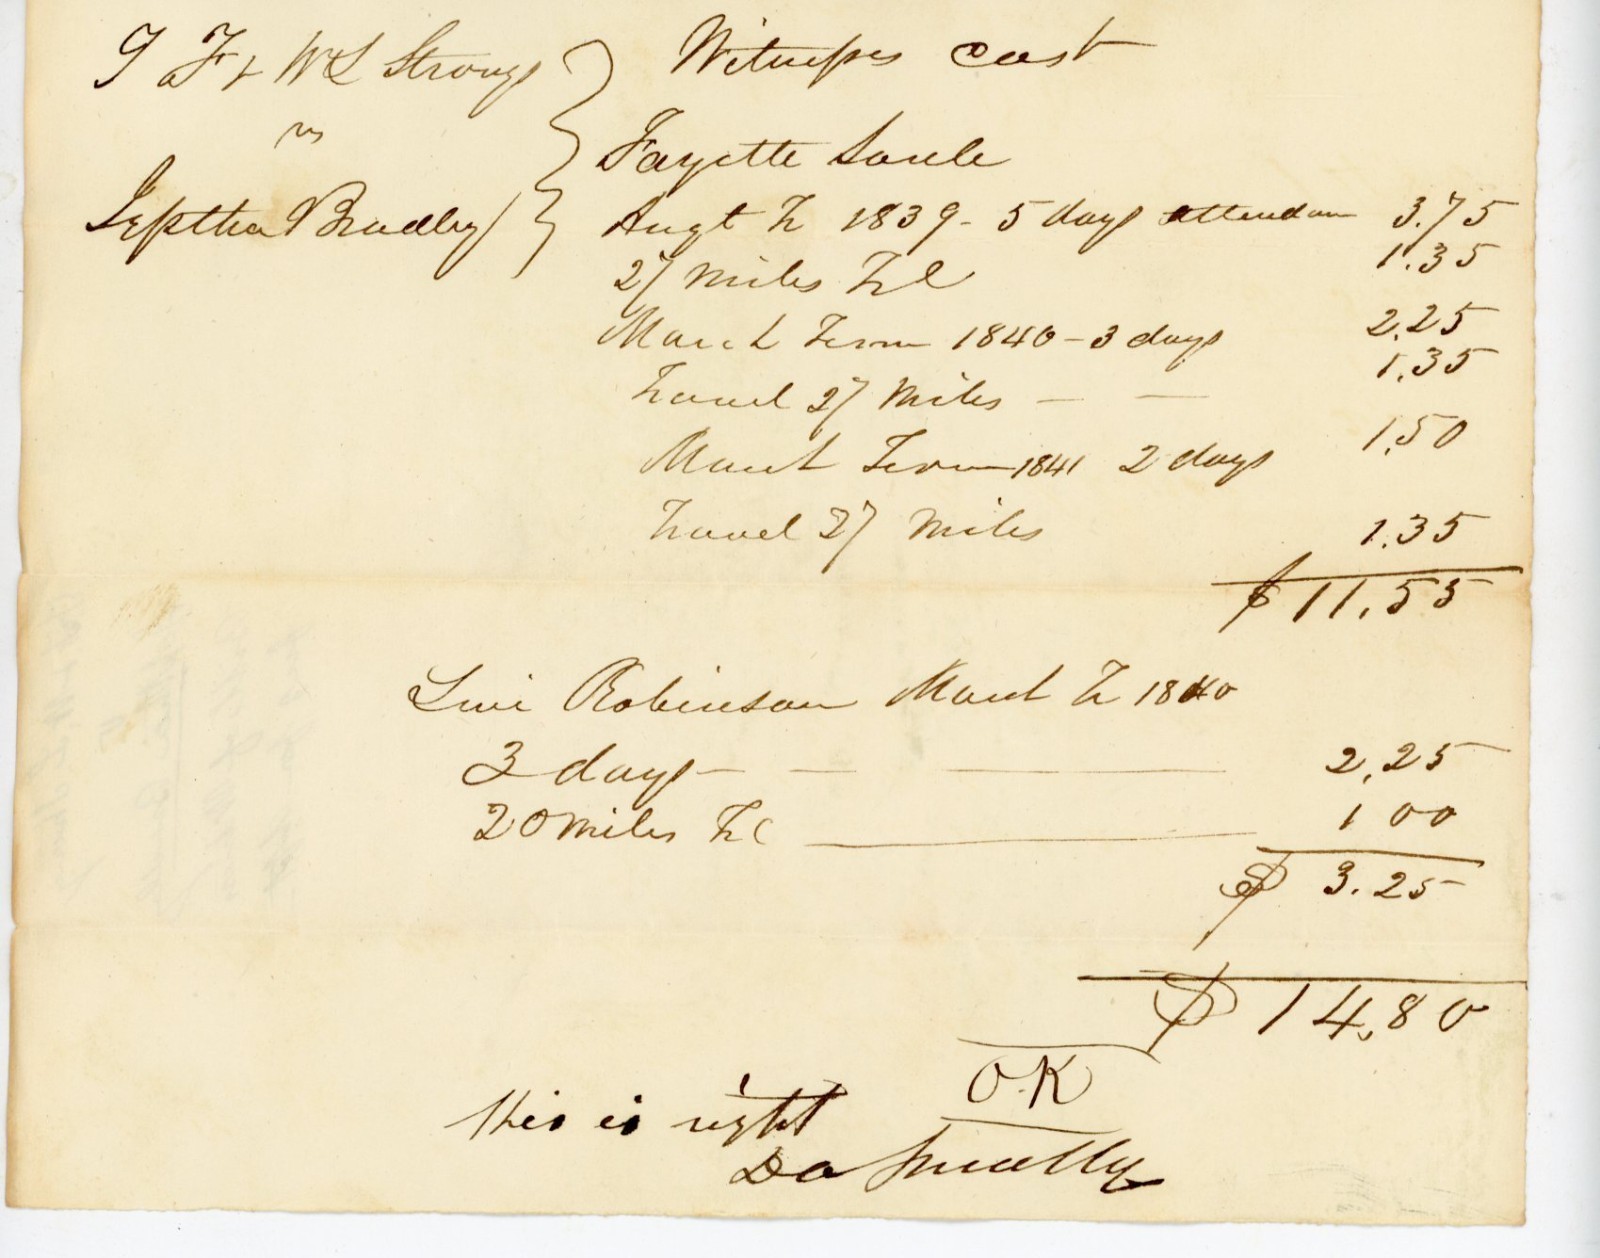 T F & W L Strong } Witness cost
vs
Jeptha Bradley } Fayette Soule
Augt T 1839 - 5 days attendan 3.75
27 Miles Tl 1.35
March Term 1840 - 3 days 2.25
Travel 27 Miles — — 1.35
March Term 1841 2 days 1.50
Travel 27 Miles 1.35
$ 11.55
Levi Robinson March T 1840
3 days — — — 2.25
20 miles Tl — 1 00
$ 3.25
$ 14.80
O.K
this is right